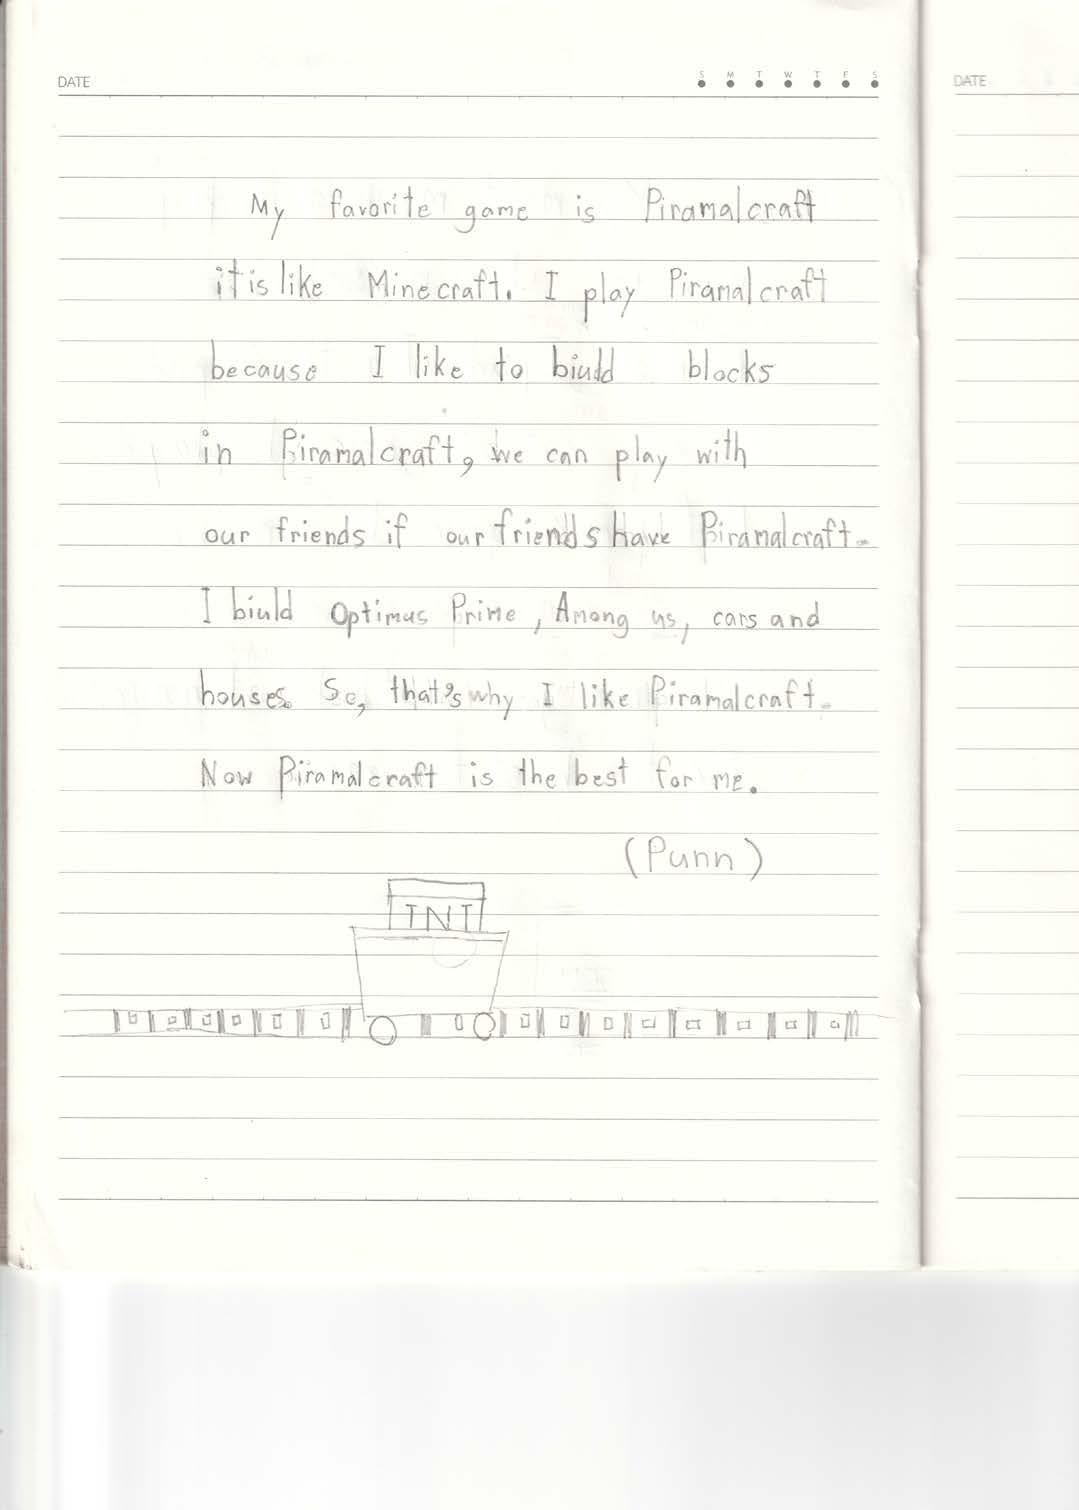 DATE
S M T W T F S
DATE
My favorite game is Piramalcraft
it is like Minecraft. I play Piramalcraft
because I like to biuld blocks
in Piramalcraft, we can play with
our friends if our friends have Piramalcraft.
I biuld Optimus Prime, Among us, cars and
houses. So, that's why I like Piramalcraft.
Now Piramalcraft is the best for me.
(Punn)
TNT